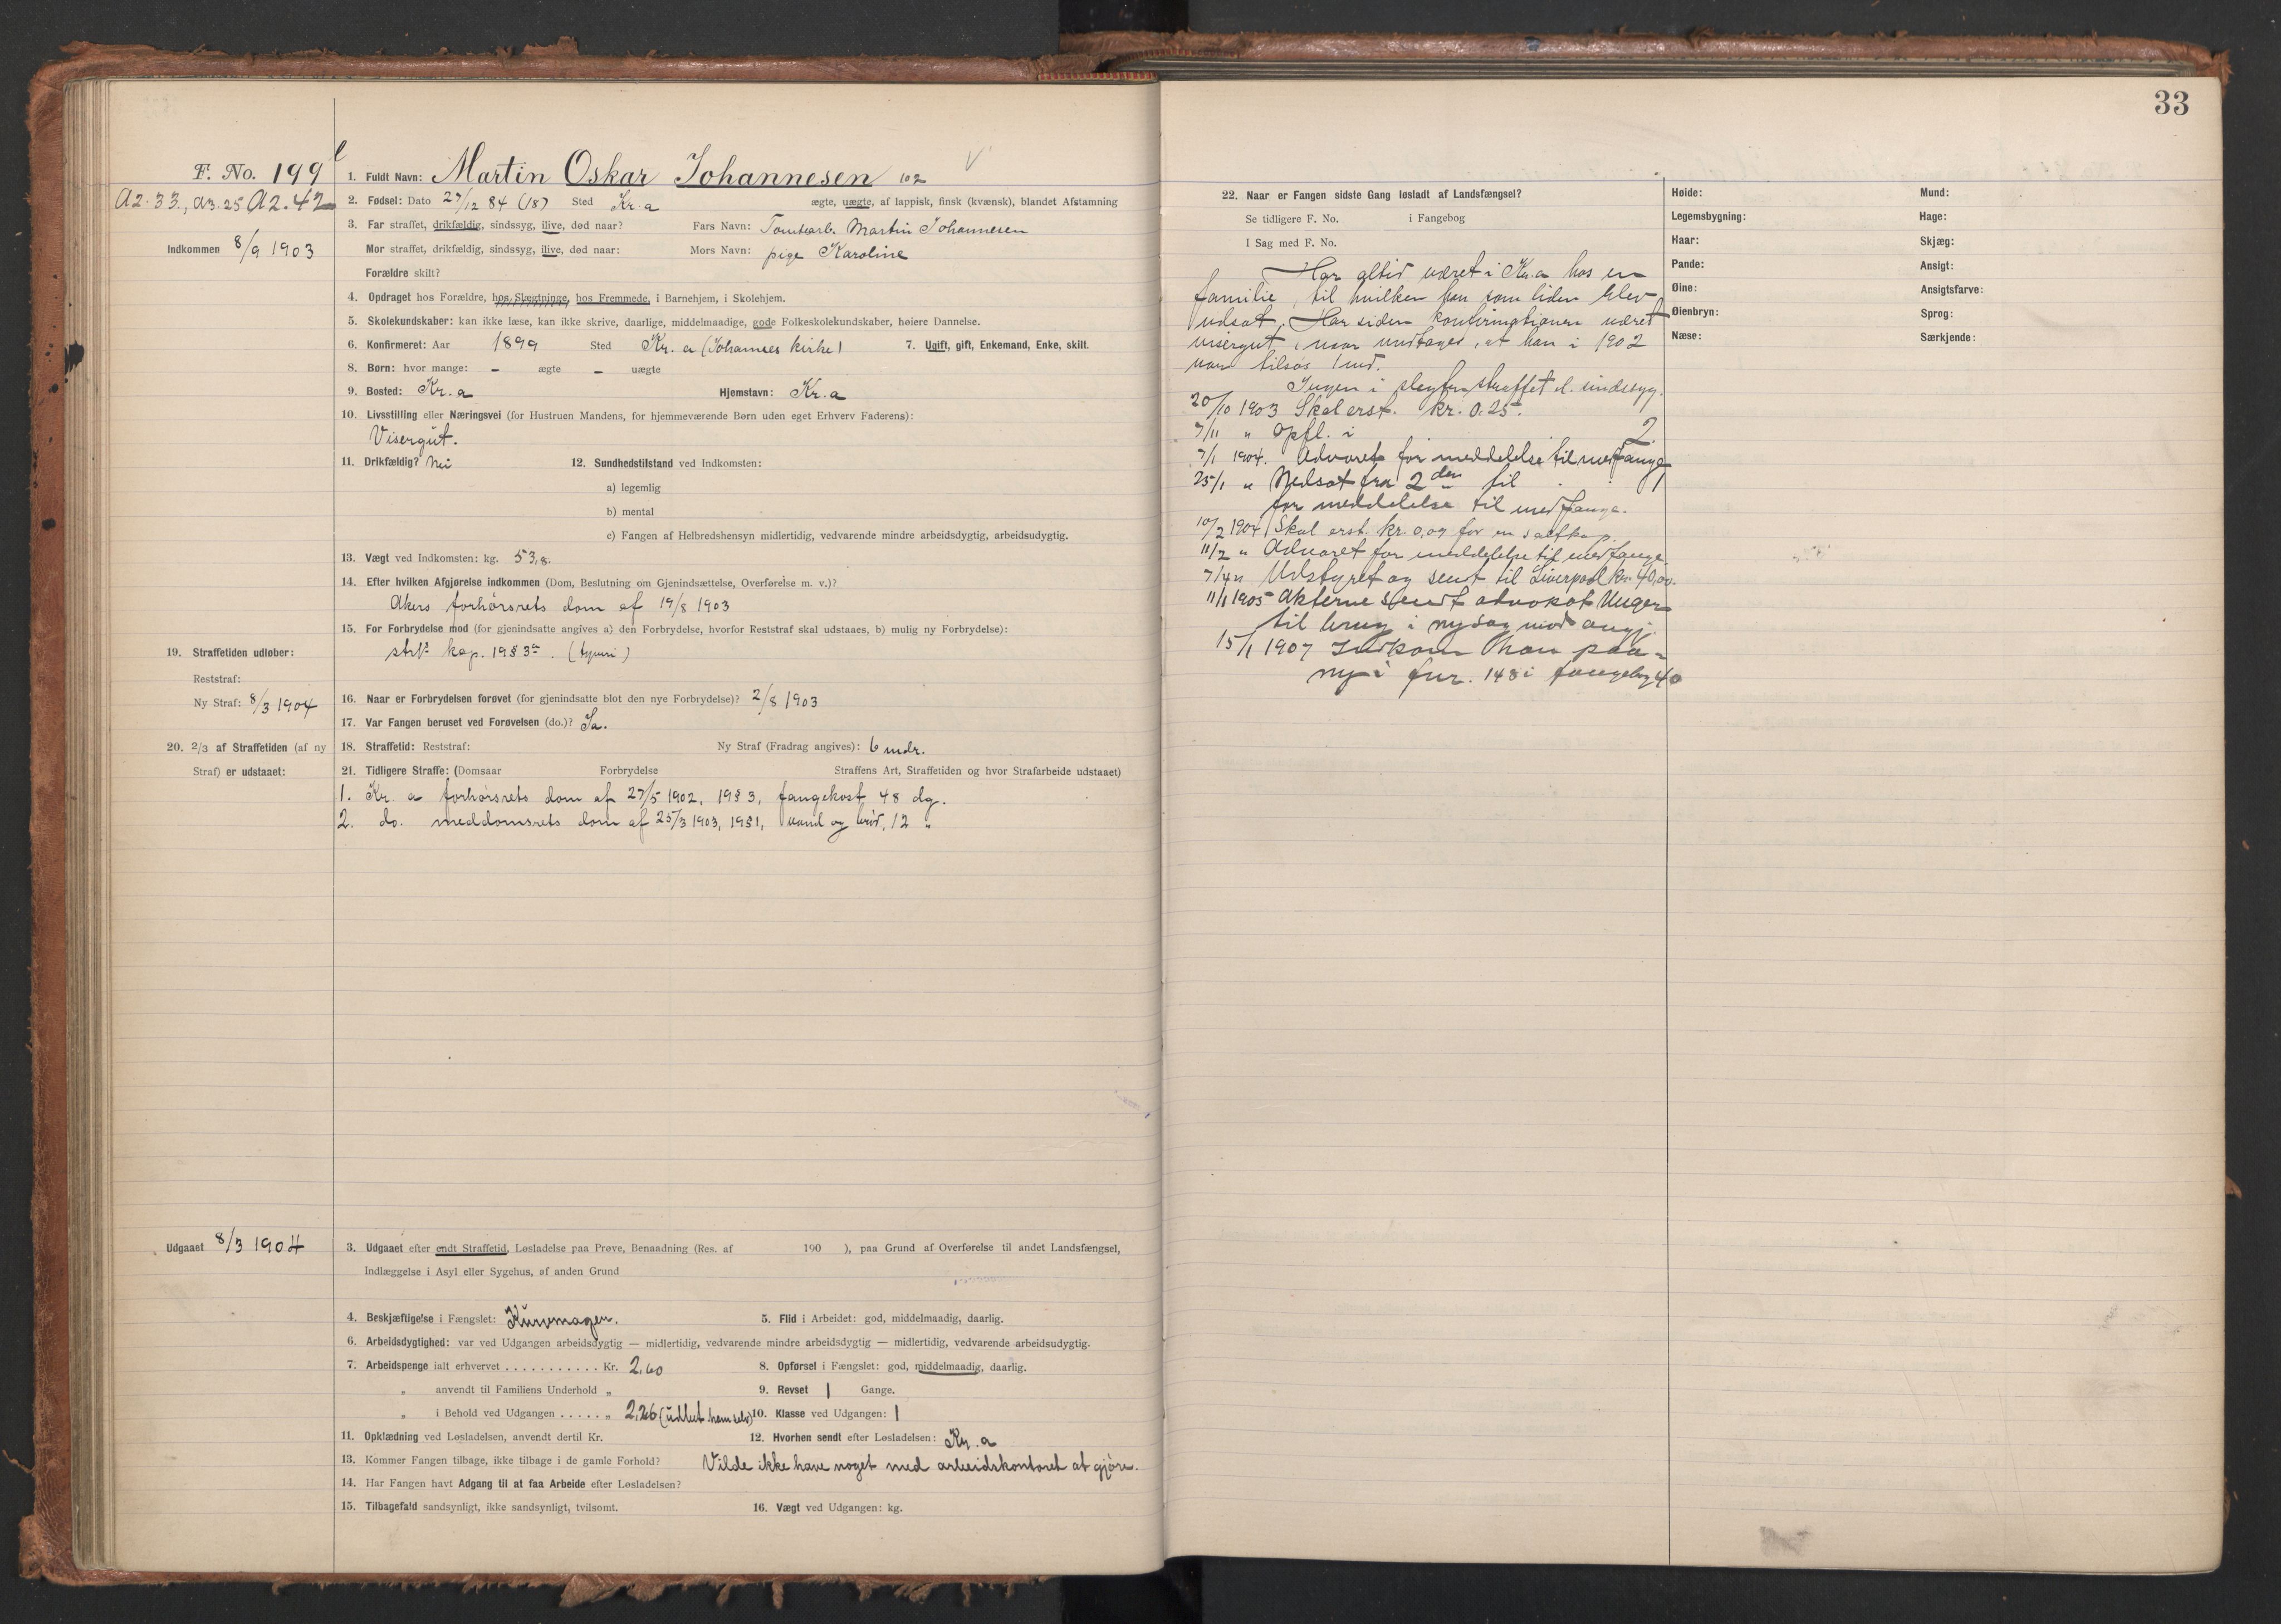 33
F. No. 199
A2.33., A3.25 A2.42
Indkommen 8/9 1903
1. Fuldt Navn: Martin Oskar Johannesen 102
2. Fødsel: Dato 27/12 84 (18) Sted Kr.a ægte, uægte, af lappisk, finsk (kvænsk), blandet Afstamning
3. Far straffet, drikfældig, sindssyg, ilive, død naar? Fars Navn: Tomtearb. Martin Johannesen
Mor straffet, drikfældig, sindssyg, ilive, død naar: Mors Navn: pige Karoline
Forældre skilt?
4. Opdraget hos Forældre, hos Slægtninge, hos Fremmede, i Barnehjem, i Skolehjem.
5. Skolekundskaber: kan ikke læse, kan ikke skrive, daarlige, middelmaadige, gode Folkeskolekundskaber, høiere Dannelse.
6. Konfirmeret: Aar 1899 Sted Kr. a (Johannes kirke) 7. Ugift, gift, Enkemand, Enke, skilt.
8. Børn: hvor mange: - ægte - uægte
9. Bosted: Kr.a Hjemstavn: Kr.a
10. Livsstilling eller Næringsvei (for Hustruen Mandens, for hjemmeværende Børn uden eget Erhverv Faderens):
Visergut.
11. Drikfældig? Nei 12. Sundhedstilstand ved Indkomsten:
a) legemlig
b) mental
c) Fangen af Helbredshensyn midlertidig, vedvarende mindre arbeidsdygtig, arbeidsudygtig.
13. Vægt ved Indkomsten: kg. 53,8.
14. Efter hvilken Afgjørelse indkommen (Dom, Beslutning om Gjenindsættelse, Overførelse m. v.)?
Akers forhørsrets dom af 19/8 1903
15. For Forbrydelse mod (for gjenindsatte angives a) den Forbrydelse, hvorfor Reststraf skal udstaaes, b) mulig ny Forbrydelse):
kap. 19 § 3 (tyveri)
19. Straffetiden udløber:
Reststraf:
Ny Straf: 8/3 1904
16. Naar er Forbrydelsen forøvet (for gjenindsatte blot den nye Forbrydelse)? 2/8 1903
17. Var Fangen beruset ved Forøvelsen (do.)? Ja.
20. 2/3 af Straffetiden (af ny
Straf) er udstaaet:
18. Straffetid: Reststraf: Ny Straf (Fradrag angives): 6 mdr.
21. Tidligere Straffe: (Domsaar Forbrydelse Straffens Art, Straffetiden og hvor Strafarbeide udstaaet)
1. Kr. a forhørsrets dom af 27/5 1902, 19 § 3, fangekost 48 dg.
2. do. meddomsrets dom af 25/3 1903, 19 § 1, vand og brød, 12 "
Udgaaet 8/3 1904
3. Udgaaet efter endt Straffetid, Løsladelse paa Prøve, Benaadning (Res. af 190 ), paa Grund af Overførelse til andet Landsfængsel,
Indlæggelse i Asyl eller Sygehus, af anden Grund
4. Beskjæftigelse i Fængslet: Kurvmager. 5. Flid i Arbeidet: god, middelmaadig, daarlig.
6. Arbeidsdygtighed: var ved Udgangen arbeidsdygtig — midlertidig, vedvarende mindre arbeidsdygtig — midlertidig, vedvarende arbeidsudygtig.
7. Arbeidspenge ialt erhvervet . . . . . . . . . . . Kr. 2,60 8. Opførsel i Fængslet: god, middelmaadig, daarlig.
" anvendt til Familiens Underhold " 9. Revset 1 Gange.
" i Behold ved Udgangen . . . . . " 2,26 (udbet. ham selv) 10. Klasse ved Udgangen: 1
11. Opklædning ved Løsladelsen, anvendt dertil Kr. 12. Hvorhen sendt efter Løsladelsen: Kr. a
13. Kommer Fangen tilbage, ikke tilbage i de gamle Forhold? Vilde ikke have noget med arbeidskontoret at gjøre.
14. Har Fangen havt Adgang til at faa Arbeide efter Løsladelsen?
15. Tilbagefald sandsynligt, ikke sandsynligt, tvilsomt. 16. Vægt ved Udgangen: kg.
22. Naar er Fangen sidste Gang løsladt af Landsfængsel?
Se tidligere F. No. i Fangebog
I Sag med F. No.
Har altid været i Kr.a hos en
familie, til hvilken han som liden blev
udsat. Har siden konfirmationen været
visergut, naar undtages, at han i 1902
var tilsøs 1 md.
Ingen i slegten straffet el. sindssyg.
20/10 1903 Skal erst. kr. 0.25.
7/11 " Opfl. i 2
7/1 1904. Advaret for meddelelse til medfange
25/1 " Nedsat fra 2den til 1
for meddelelse til medfange.
10/2 1904 Skal erst. kr. 0,09 for en saltkop.
11/2 " Advaret for meddelelse til medfange
7/4 " Udstyret og sendt til Liverpool kr. 40,00.
11/1 1905 Akterne sendt advokat Unger
til brug i ny sag mod angj.
15/1 1907 Indkom han paa
ny i fnr. 148 i fangebog 40
Høide:
Legemsbygning:
Haar:
Pande:
Øine:
Øienbryn:
Næse:
Mund:
Hage:
Skjæg:
Ansigt:
Ansigtsfarve:
Sprog:
Særkjende: